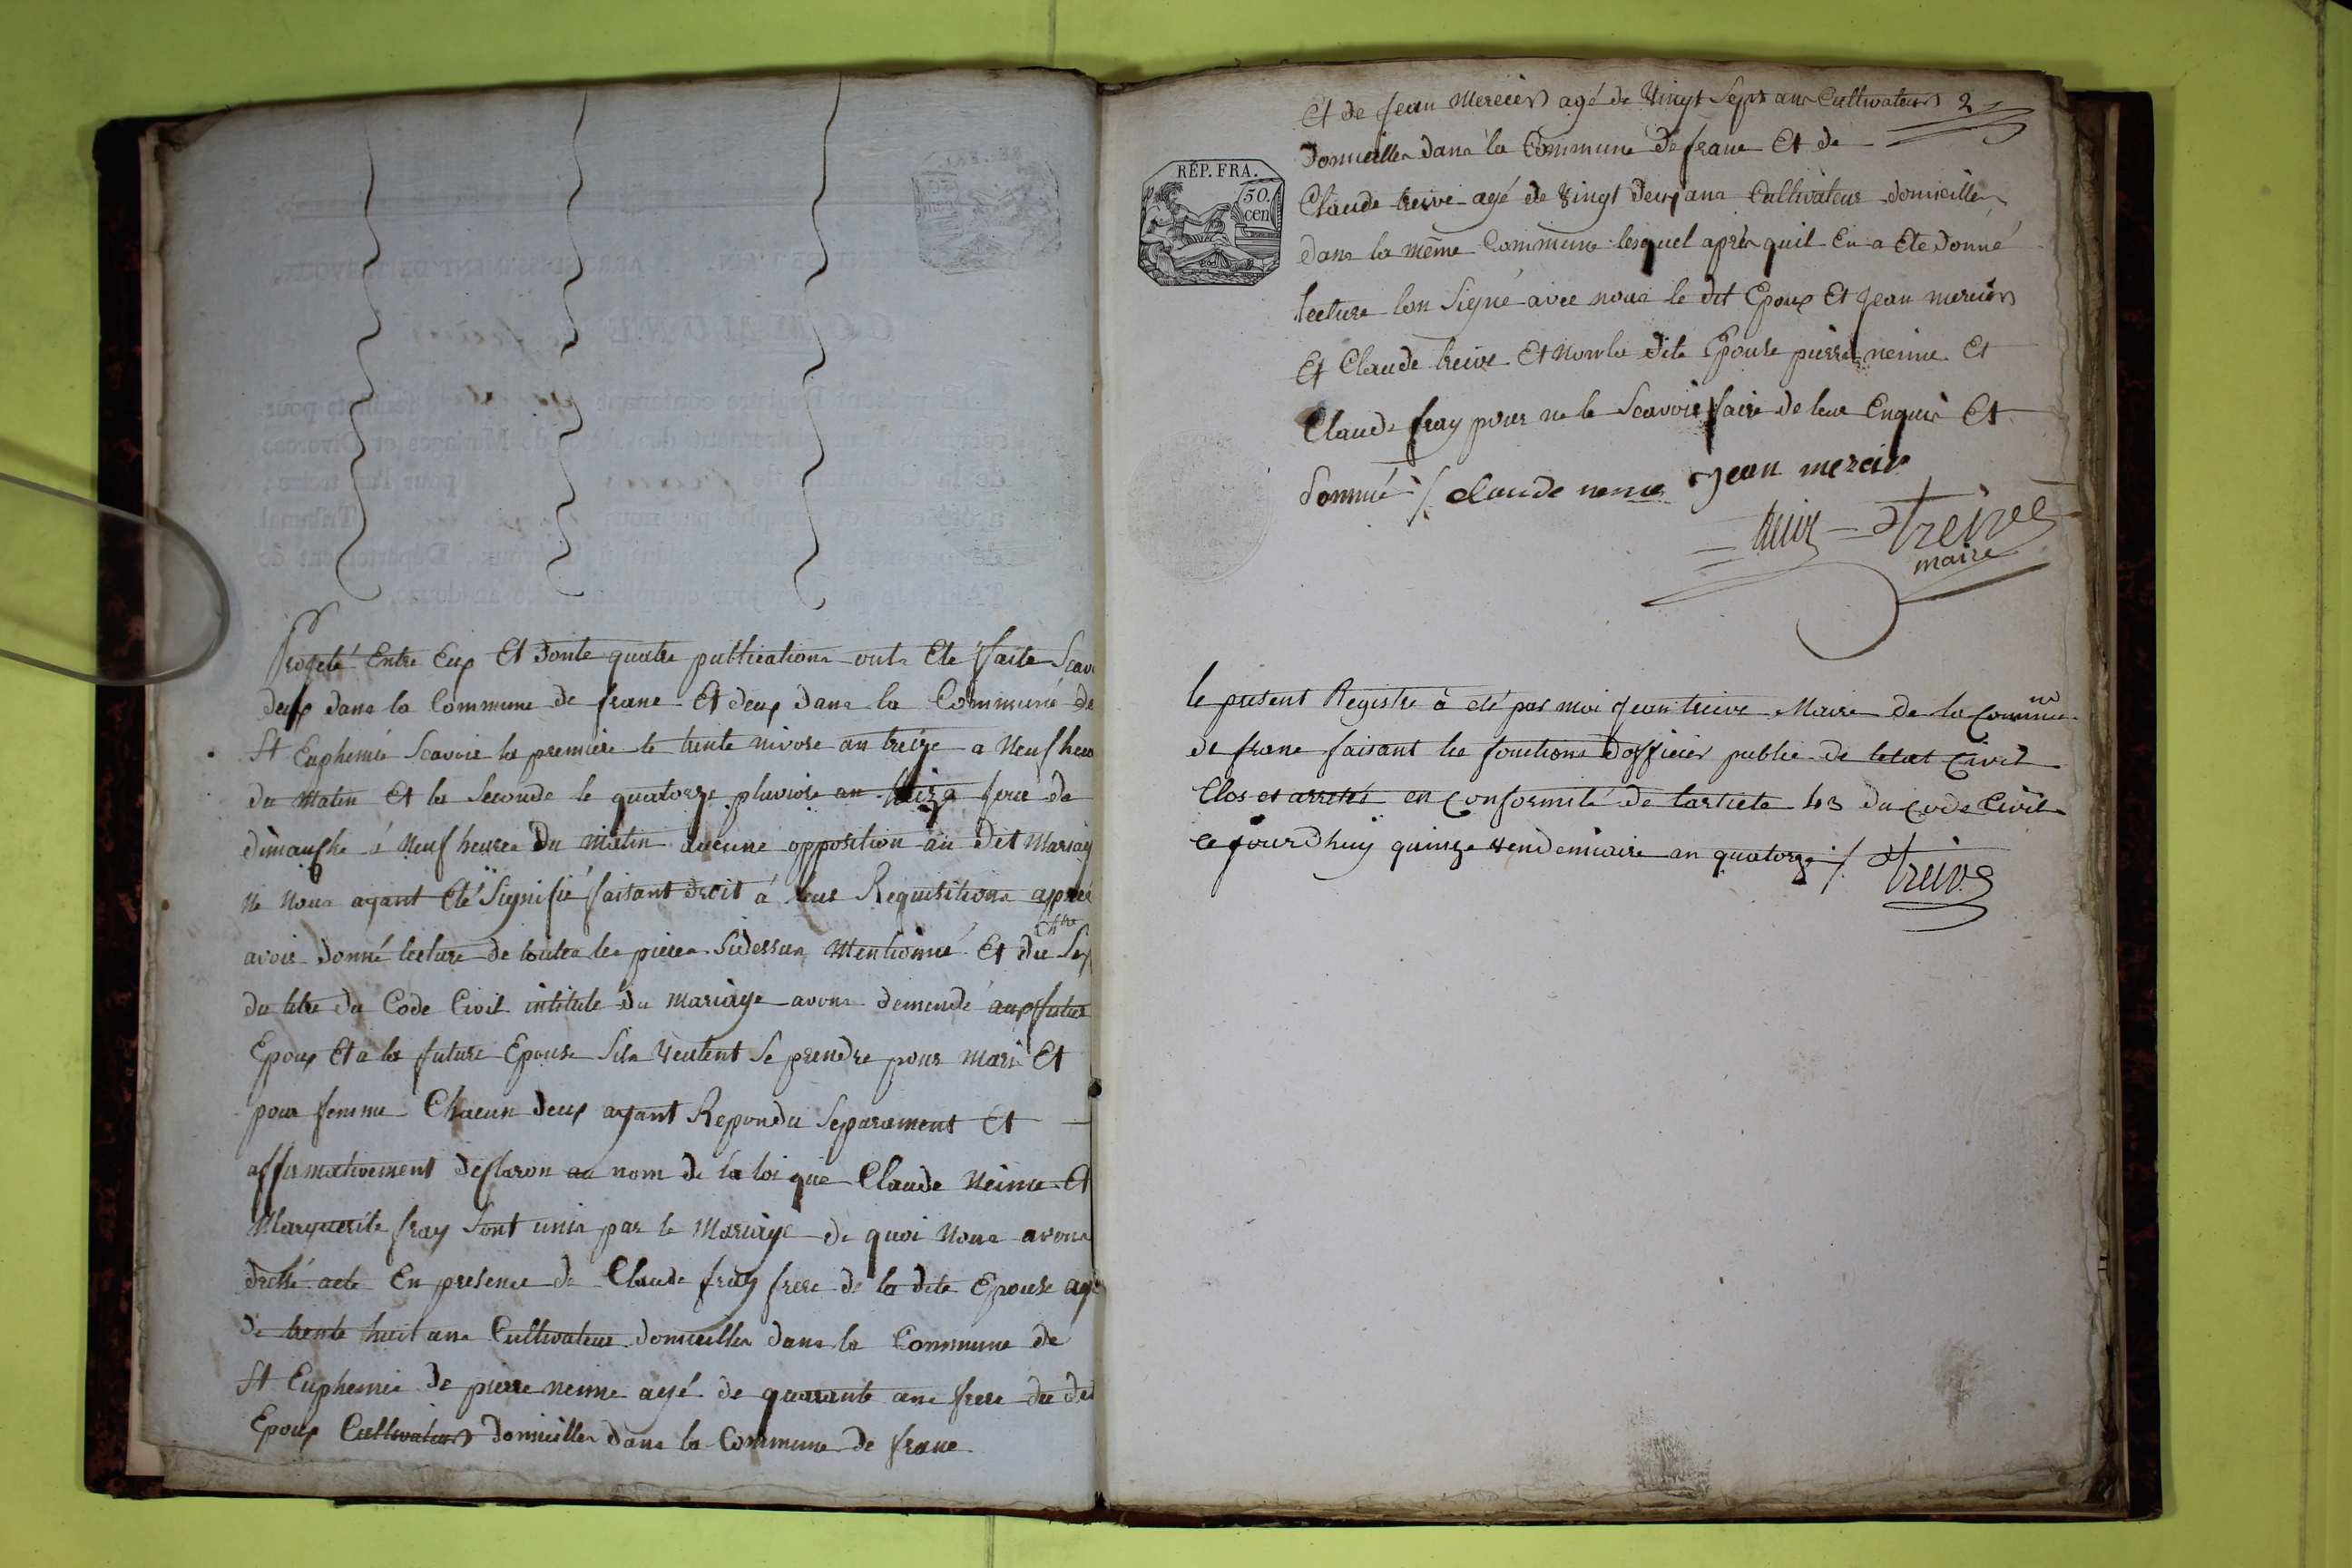 Projeté Entre Eux Et donte quatre publications onts Eté faite Scav
deux dans la Commune de franc Et deux dans la Commune de
St Euphemie Scavoir la premiere le trente nivose an treize a Neuf heur
du Matin Et la Seconde le quatorze pluviose an treize jour de
dimanche à Neuf heures Du Matin aucune opposition au Dit Mariag
Ne Nous ayant Eté Signifié faisant droit à leur Requisitions après
avoir donné lecture de toutes les pieces Sidessus Mentionné Et du
du titre du Code Civil intitulé du Mariage avons demandé aux futur
Epoux Et a la future Epouse Sils Veulent Se prendre pour Mari Et
pour femme Chacun deux ayant Repondu Separament Et
affirmativement declaron au nom de la loi que Claude Neime Et
Marguerite fray Sont unis par le Mariage de quoi Nous avons
dressé acte En presence de Claude fray frere de la dite Epouse agé
de trente huit ans Cultivateur domicilles dans la Commune de
St Euphemie de pierre neime agé de quarante ans frere du dit
Epoux Cultivateur domicilles dans la Commune de franc
Et de Jean Mercier agé de Vingt Sept ans Cultivateur 2
domicilles dans la Commune de franc Et de
RÉP. FRA.
50.
cen
Claude treive agé de Vingt deux ans Cultivateur domicilles
dans la même Commune lesquel après quil En a Eté donné
lecture lon Signé avec nous le dit Epoux Et Jean mercier
Et Claude treive Et Non la dite Epouse pierre neime Et
Claude fray pour ne le Scavoir faire de leur Enquis Et
Sommé /. claude neme Jean mercier
treive Jtreive
maire
le present Registre à eté par moi Jean treive Maire de la Commune
de franc faisant les fonctions dofficier public de letat Civil
Clos et arretés en Conformité de larticle 43 du Code Civil
ce jourdhuy quinze vendemiaire an quatorze /. Jtreive